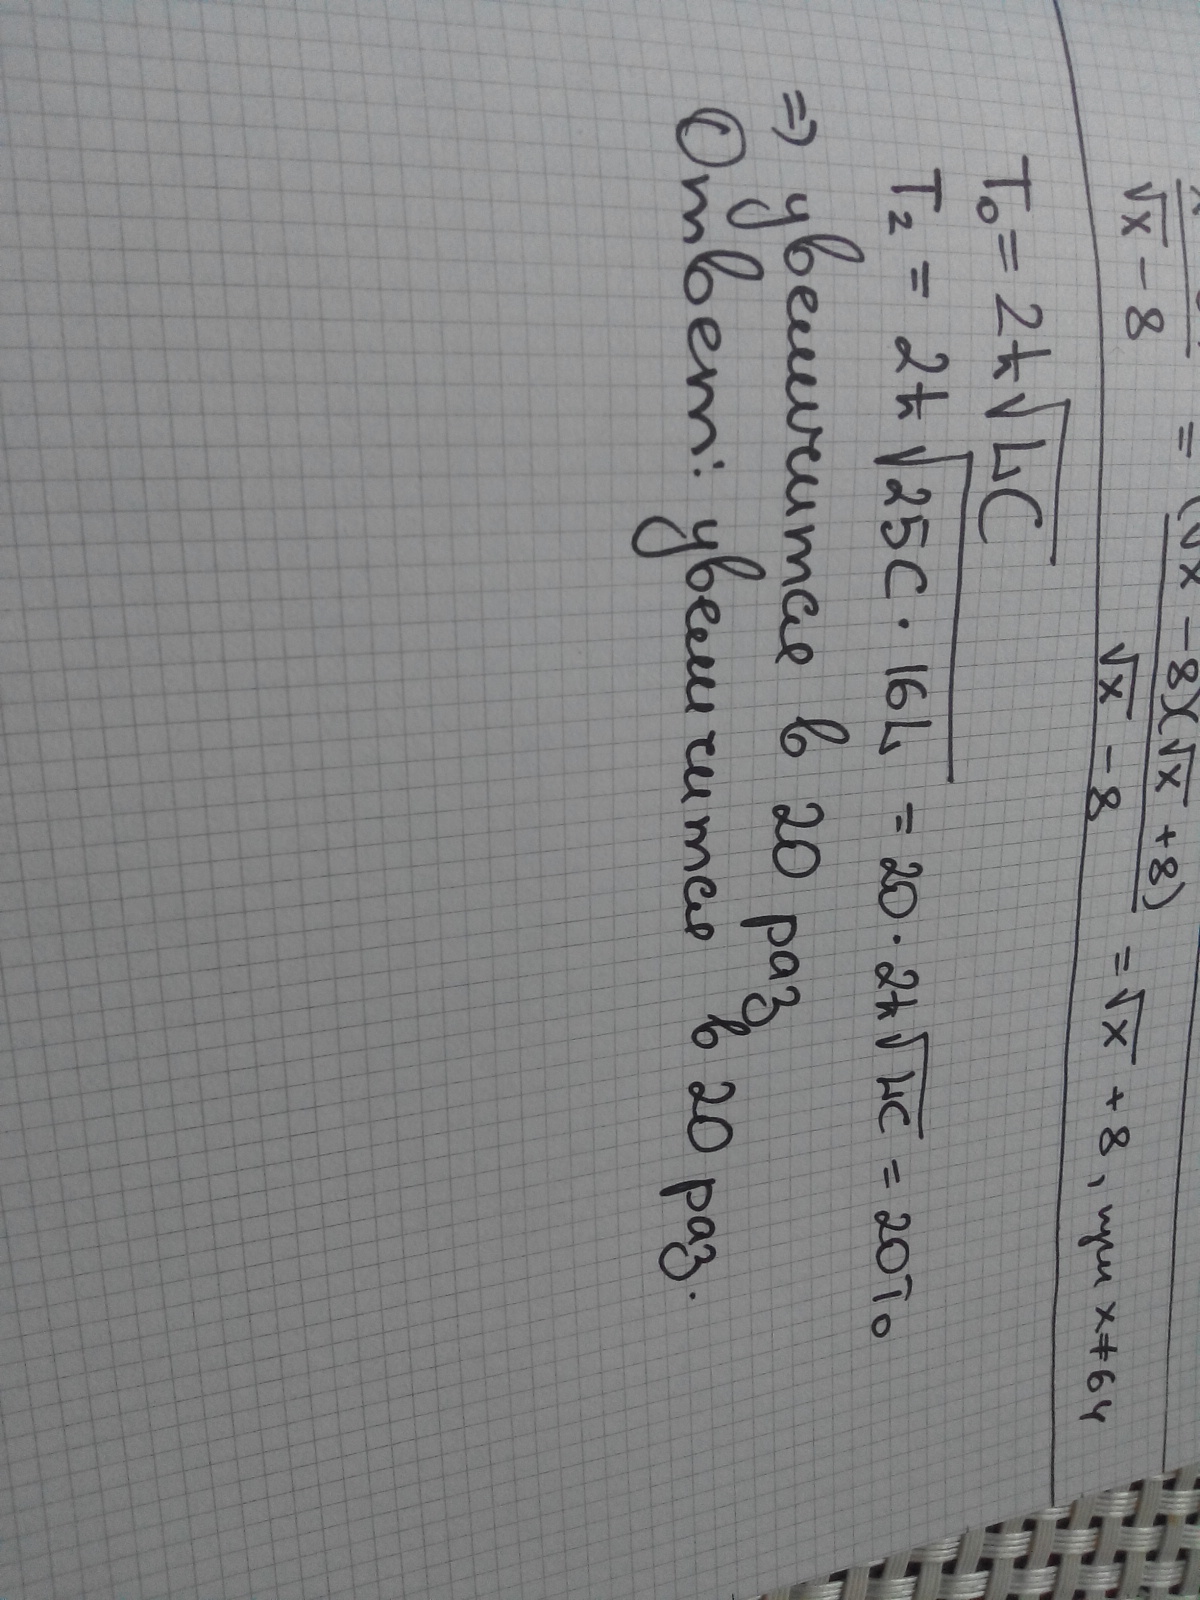 √x - 8 = (√x - 8)(√x + 8) = √x + 8, при x ≠ 64
√x - 8
T₀ = 2π√LC
T₂ = 2π√25C · 16L = 20 · 2π√LC = 20T₀
=> увеличится в 20 раз
Ответ: увеличится в 20 раз.